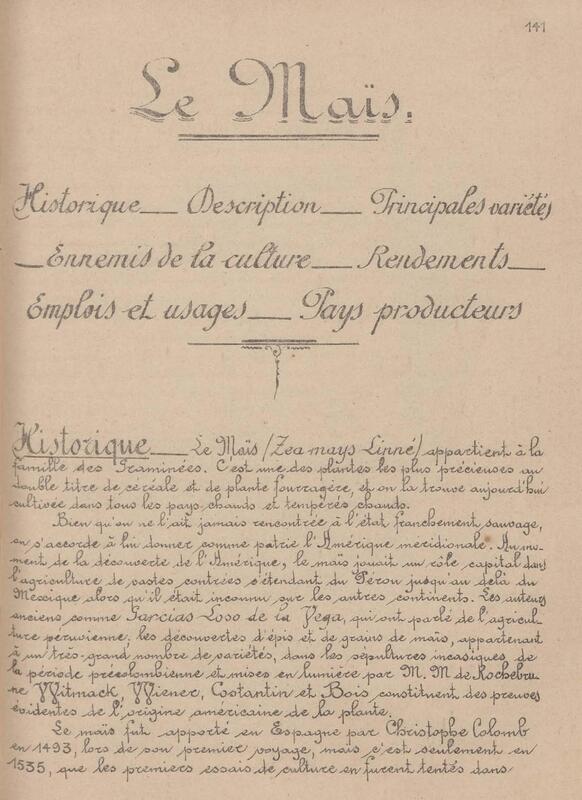 141
Le Maïs.
Historique — Description — Principales variétés
— Ennemis de la culture — Rendements —
Emplois et usages — Pays producteurs
Historique — Le Maïs (Zea mays Linné) appartient à la
famille des Graminées. C'est une des plantes les plus précieuses au
double titre de céréale et de plante fourragère, et on la trouve aujourd'hui
cultivée dans tous les pays chauds et tempérés chauds.
Bien qu'on ne l'ait jamais rencontrée à l'état franchement sauvage,
on s'accorde à lui donner comme patrie l'Amérique méridionale. Au mo-
ment de la découverte de l'Amérique, le maïs jouait un rôle capital dans
l'agriculture de vastes contrées s'étendant du Pérou jusqu'au delà du
Mexique alors qu'il était inconnu sur les autres continents. Les auteurs
anciens comme Garcias Loso de la Vega, qui ont parlé de l'agricul-
ture péruvienne; les découvertes d'épis et de grains de maïs, appartenant
à un très-grand nombre de variétés, dans les sépultures incasiques de
la période précolombienne et mises en lumière par M. M de Rochebru-
ne Witmack, Wiener, Costantin et Bois constituent des preuves
évidentes de l'origine américaine de la plante.
Le maïs fut apporté en Espagne par Christophe Colomb
en 1493, lors de son premier voyage, mais c'est seulement en
1535, que les premiers essais de culture en furent tentés dans